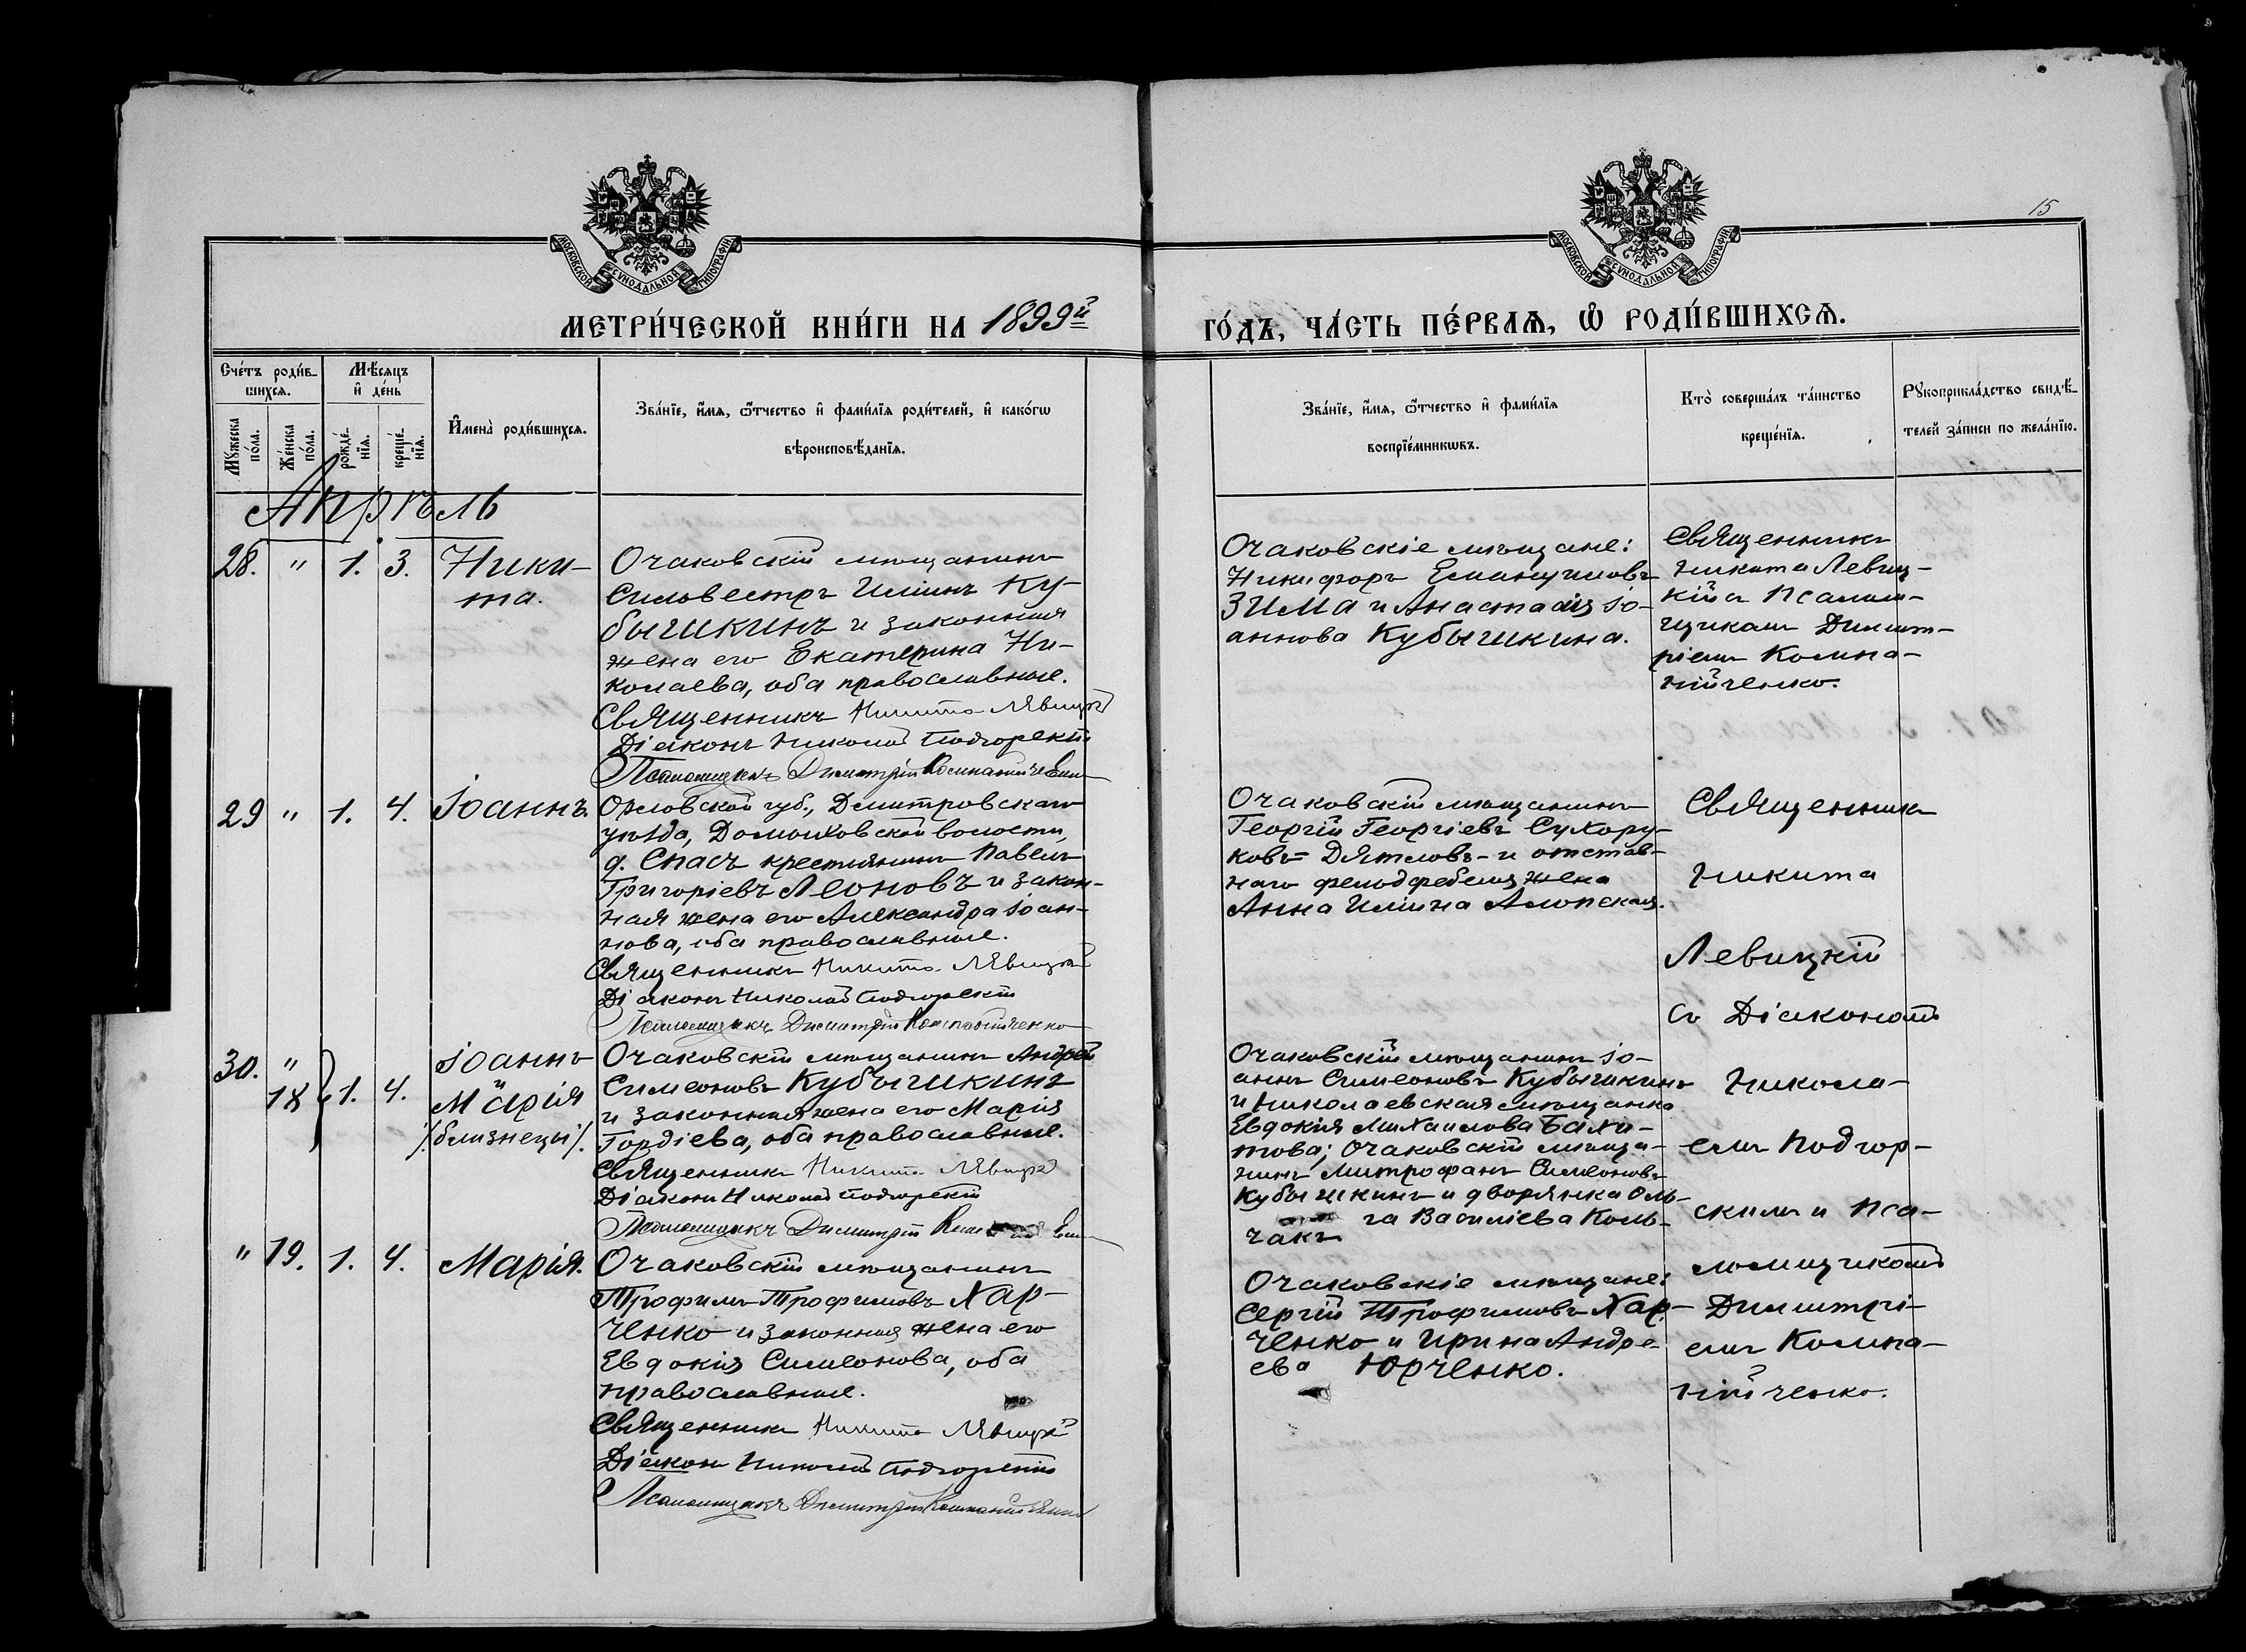 15
МОСКОВСКОЙ СѴНОДАЛЬНОЙ ТИПОГРАФІИ
МОСКОВСКОЙ СѴНОДАЛЬНОЙ ТИПОГРАФІИ
МЕТРИ́ЧЕСКОЙ КНИ́ГИ НА 1899й
ГО́ДЪ, ЧА́СТЬ ПЕ́РВАѦ, Ѽ РОДИ́ВШИХСѦ.
Сче́тъ роди́в-
шихсѧ.
Мѣ́сѧцъ
и҆ де́нь
Мꙋ́жеска
по́ла.
Же́нска
по́ла.
рожде́-
нїѧ.
креще́-
нїѧ.
И҆мена̀ роди́вшихсѧ.
Зва́нїе, и҆́мѧ, ѻ҆́тчество и҆ фами́лїѧ роди́телей, и҆ како́гѡ
вѣроисповѣ́данїѧ.
Зва́нїе, и҆́мѧ, ѻ҆́тчество и҆ фами́лїѧ
воспрїе́мникѡвъ.
Кто̀ соверша́лъ та́инство
креще́нїѧ.
Рꙋкоприкла́дство свидѣ́-
телей за́писи по жела́нїю.
Апрѣль
28. " 1. 3. Ники-
та.
Очаковскій мѣщанинъ
Сильвестръ Иліинъ Ку-
бышкинъ и законная
жена его Екатерина Ни-
колаева, оба православные.
Священникъ Никита Левицкій
Діаконъ Николай Подгорскій
Псаломщикъ Димитрій Компанійченко
Очаковскіе мѣщане:
Никифоръ Емануиловъ
Зима и Анастасія Іо-
аннова Кубышкина.
Священникъ
Никита Левиц-
кій съ Псалом-
щикомъ Димит-
ріемъ Компа-
нійченко.
29 " 1. 4. Іоаннъ.
Орловской губ., Дмитровскаго
уѣзда, Домаховской волости,
д. Спасъ крестьянинъ Павелъ
Григоріевъ Леоновъ и закон-
ная жена его Александра Іоан-
нова, оба православные.
Священникъ Никита Левицкій
Діаконъ Николай Подгорскій
Псаломщикъ Димитрій Компанійченко
Очаковскій мѣщанинъ
Георгій Георгіевъ Сухору-
ковъ-Дятловъ- и отстав-
наго фельдфебеля жена
Анна Иліина Алопская.
Священникъ
Никита
Левицкій
съ Діакономъ
Никола-
емъ Подгор-
скимъ и Пса-
ломщикомъ
Димитрі-
емъ Компа-
нійченко.
30. " Іоаннъ
18 1. 4. Марія
/близнецы/.
Очаковскій мѣщанинъ Андрей
Симеоновъ Кубышкинъ
и законная жена его Марія
Гордіева, оба православные.
Священникъ Никита Левицкій
Діаконъ Николай Подгорскій
Псаломщикъ Димитрій
Очаковскій мѣщанинъ Іо-
аннъ Симеоновъ Кубышкинъ
и Николаевская мѣщанка
Евдокія Михаилова Бахи-
това; Очаковскій мѣща-
нинъ Митрофанъ Симеоновъ
Кубышкинъ и дворянка Оль-
га Василіева Коль-
чакъ
" 19. 1. 4. Марія.
Очаковскій мѣщанинъ
Трофимъ Трофимовъ Хар-
ченко и законная жена его
Евдокія Симеонова, оба
православные.
Священникъ Никита Левицкій
Діаконъ Николай Подгорскій
Псаломщикъ Димитрій Компанійченко
Очаковскіе мѣщане:
Сергій Трофимовъ Хар-
ченко и Ирина Андре-
ева Юрченко.